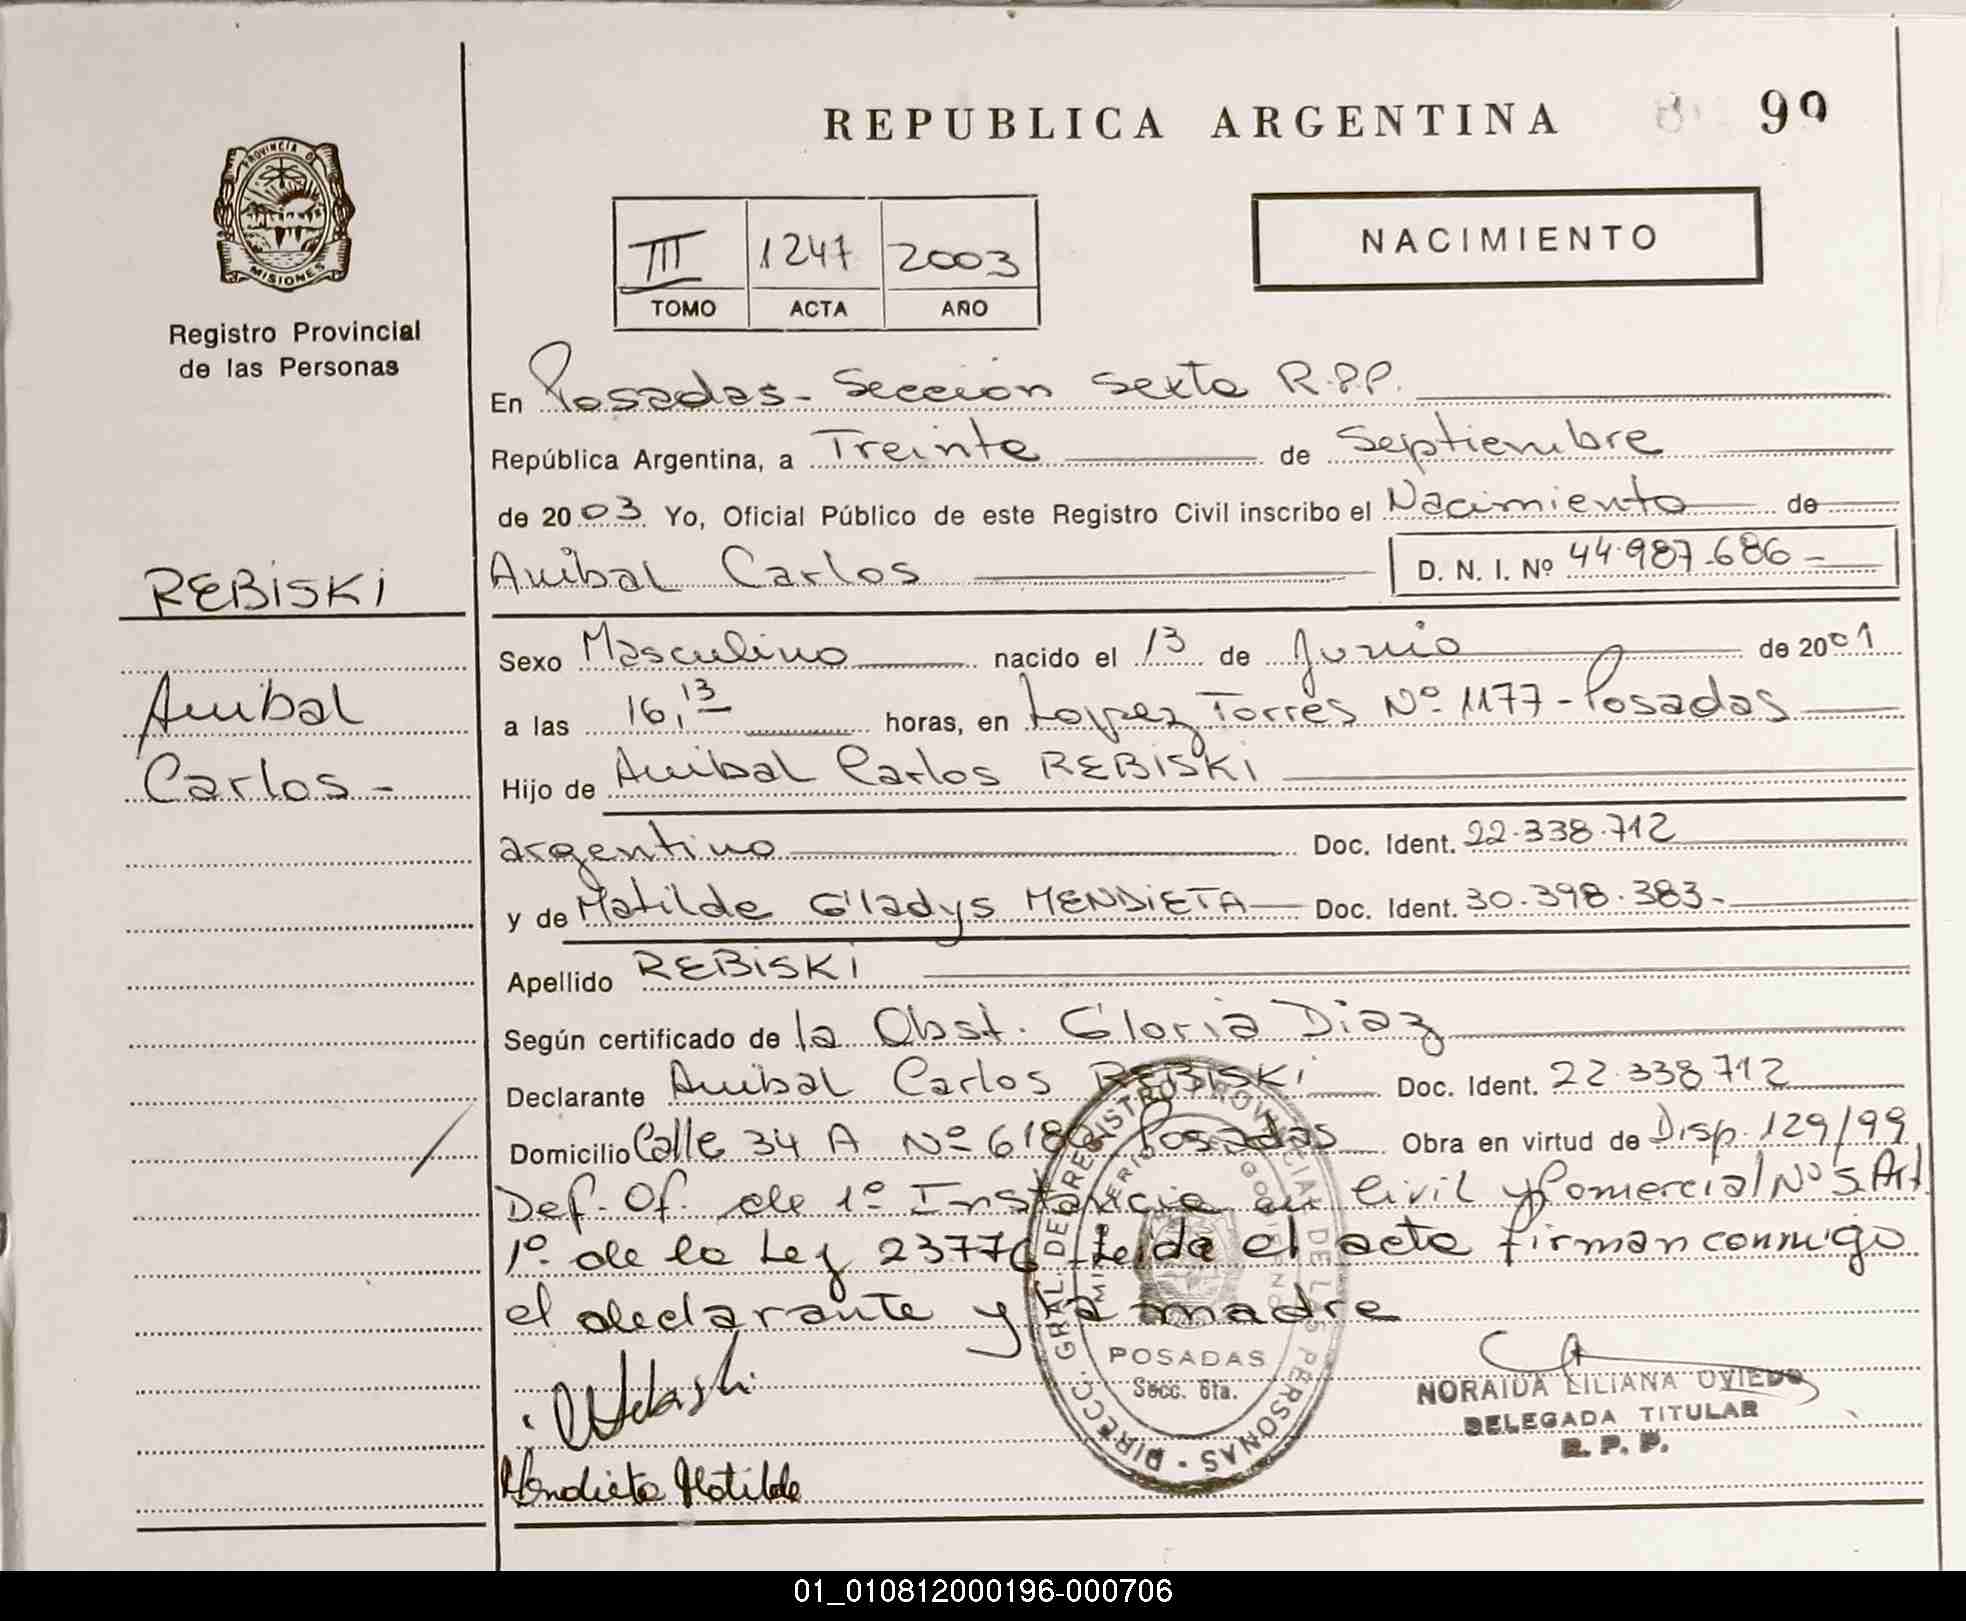 REPUBLICA ARGENTINA 99
PROVINCIA DE
MISIONES
Registro Provincial
de las Personas
III 1247 2003
TOMO ACTA AÑO
NACIMIENTO
En Posadas - Sección Sexta R.P.P.
República Argentina, a Treinta de Septiembre
de 2003 Yo, Oficial Público de este Registro Civil inscribo el Nacimiento de
Anibal Carlos D. N. I. Nº 44.987.686 -
REBISKI
Anibal
Carlos -
Sexo Masculino nacido el 13 de Junio de 2001
a las 16,13 horas, en Lopez Torres Nº 1177 - Posadas
Hijo de Anibal Carlos REBISKI
argentino Doc. Ident. 22.338.712
y de Matilde Gladys MENDIETA Doc. Ident. 30.398.383.-
Apellido REBISKI
Según certificado de la Obst. Gloria Diaz
Declarante Anibal Carlos REBISKI Doc. Ident. 22.338712
Domicilio Calle 34 A Nº 6186 Posadas Obra en virtud de Disp. 129/99
Def. Of. de 1º Instancia en Civil y Comercial Nº 5. Art.
1º de la Ley 23776 Leida el acta firman conmigo
el declarante y la madre
DIRECC. GRAL. DE REGISTRO PROVINCIAL DE LAS PERSONAS
MINISTERIO GOBIERNO
POSADAS
Secc. 6ta.
NORAIDA LILIANA OVIEDO
DELEGADA TITULAR
R. P. P.
Mendieta Matilde
01_010812000196-000706